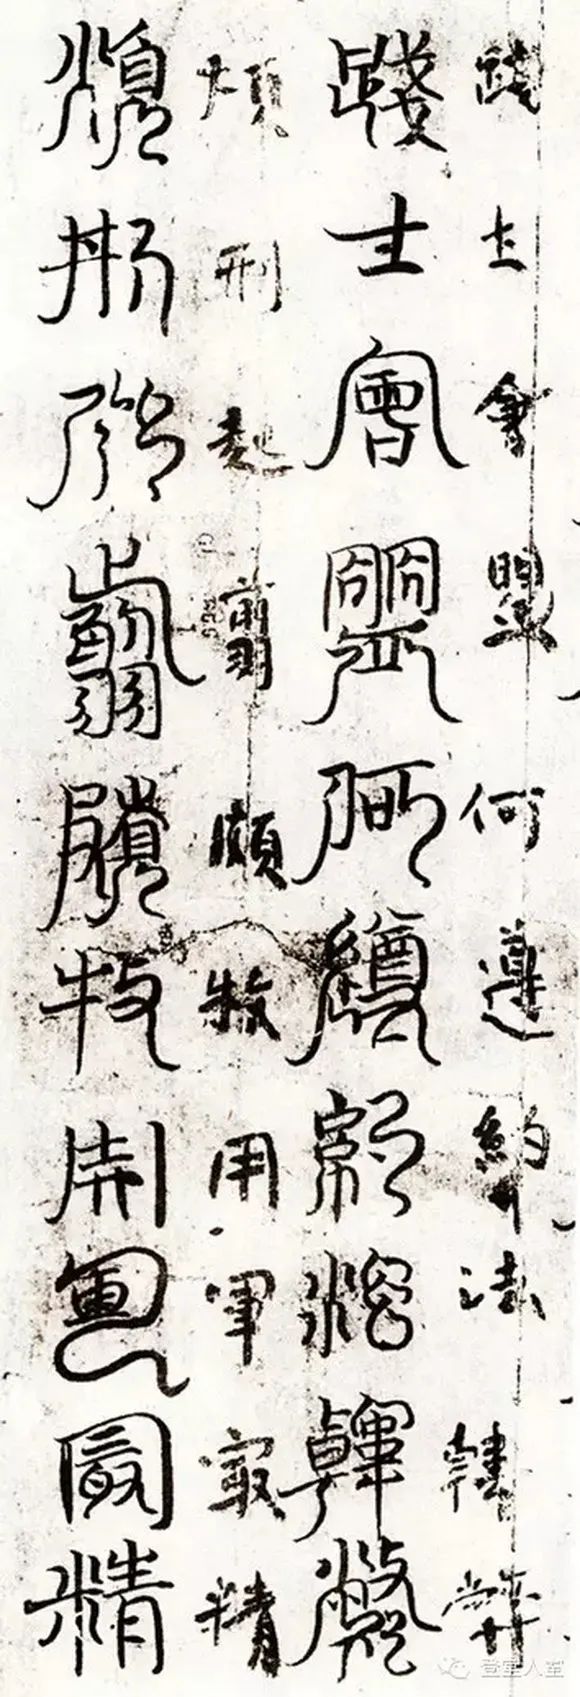 踐土會盟何遵約法韓弊
踐土會盟何遵約法韓弊
煩刑起翦頗牧用軍最精
煩刑起翦頗牧用軍最精
登堂入室